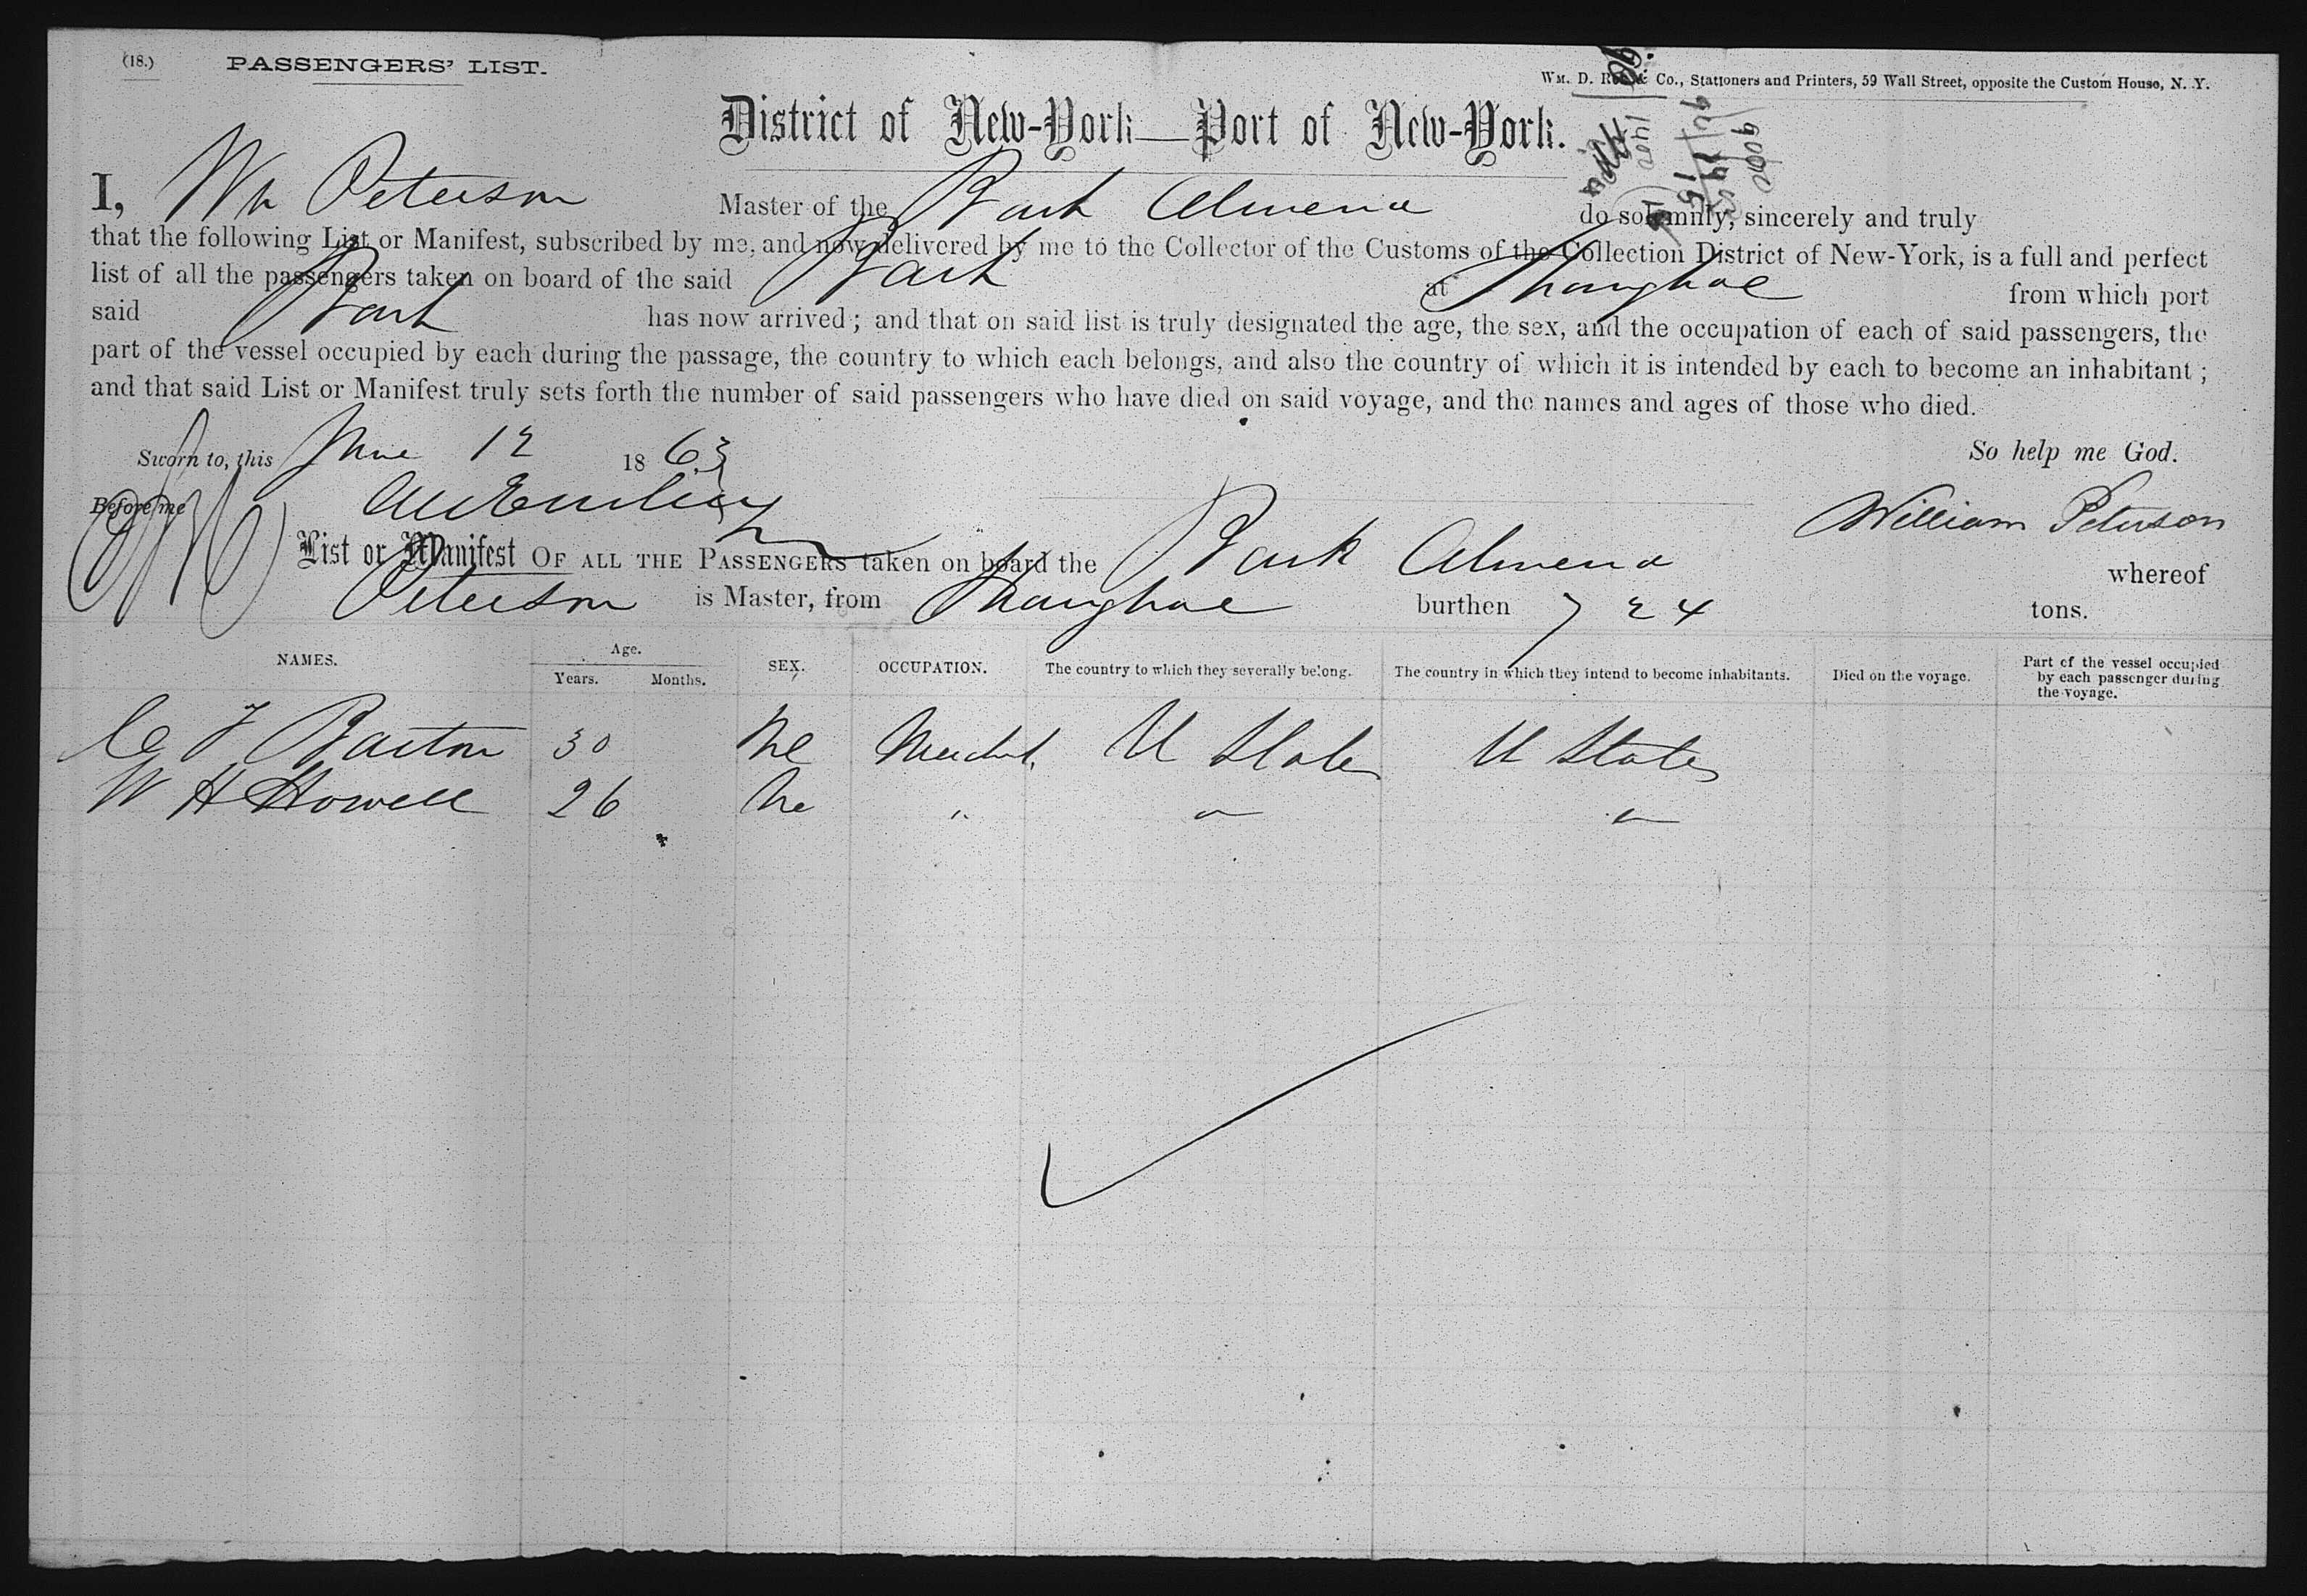 (18.) PASSENGERS' LIST.
WM. D. ROE & Co., Stationers and Printers, 59 Wall Street, opposite the Custom House, N. Y.
District of New-York—Port of New-York.
I, Wm Peterson Master of the Bark Almena do solemnly, sincerely and truly
that the following List or Manifest, subscribed by me, and now delivered by me to the Collector of the Customs of the Collection District of New-York, is a full and perfect
list of all the passengers taken on board of the said Bark at Shanghae from which port
said Bark has now arrived; and that on said list is truly designated the age, the sex, and the occupation of each of said passengers, the
part of the vessel occupied by each during the passage, the country to which each belongs, and also the country of which it is intended by each to become an inhabitant;
and that said List or Manifest truly sets forth the number of said passengers who have died on said voyage, and the names and ages of those who died.
Sworn to, this June 12 1863 So help me God.
Before me William Peterson
List or Manifest OF ALL THE PASSENGERS taken on board the Bark Almena whereof
Peterson is Master, from Shanghae burthen 724 tons.
NAMES. Age. Years. Months. SEX. OCCUPATION. The country to which they severally belong. The country in which they intend to become inhabitants. Died on the voyage. Part of the vessel occupied by each passenger during the voyage.
C F Barton 30 Me Mercht. U States U States
W H Howell 26 Me " " "